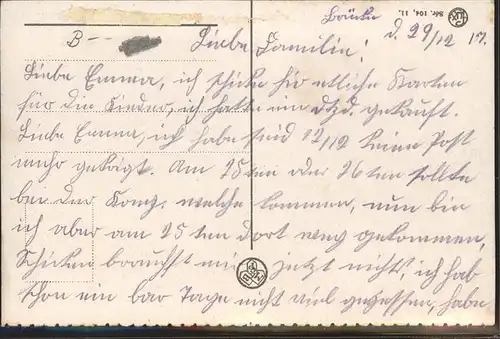 Brücke Ser. 104, 11.
B-- d. 29/12 17.
Liebe Familie!
Liebe Emma, ich schicke hir etliche Karten
für die Kinder, ich hatte ein dtzd. gekauft.
Liebe Emma, ich habe seid 12/12 keine Post
mehr gekrigt. Am 25ten oder 26ten sollte
bei der Komp. welche kommen, nun bin
ich aber am 25ten dort weg gekommen,
Schicken brauchst mir jetzt nichts, ich hab
schon ein bar Tage nicht viel gegessen, habe